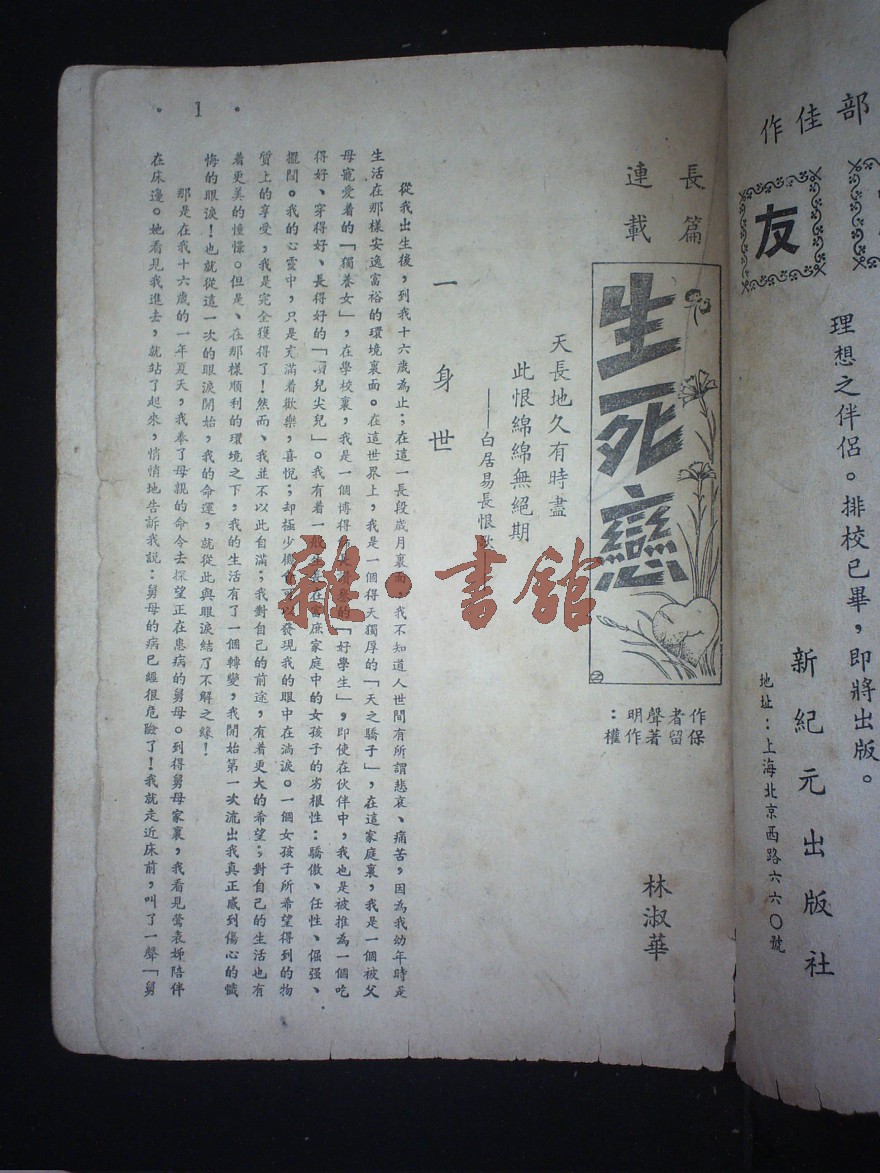 部佳作
友
理想之伴侶。排校已畢，即將出版。
新紀元出版社
地址：上海北京西路六六〇號
長篇
連載
生死戀
作者聲明：
保留著作權
林淑華
天長地久有時盡
此恨綿綿無絕期
——白居易長恨
一 身世
從我出生後，到我十六歲為止；在這一長段歲月裏面，我不知道人世間有所謂悲哀、痛苦，因為我幼年時是
生活在那樣安逸富裕的環境裏面。在這世界上，我是一個得天獨厚的「天之驕子」，在這家庭裏，我是一個被父
母寵愛着的「獨養女」，在學校裏，我是一個博得 的「好學生」，即使在伙伴中，我也是被推為一個吃
得好、穿得好、長得好的「頂兒尖兒」。我有着一般 在富庶家庭中的女孩子的劣根性：驕傲、任性、倔强、
擺闊。我的心靈中，只是充滿着歡樂，喜悅；却極少 以發現我的眼中在淌淚。一個女孩子所希望得到的物
質上的享受，我是完全獲得了！然而、我並不以此自滿；我對自己的前途，有着更大的希望；對自己的生活也有
着更美的憧憬。但是、在那樣順利的環境之下，我的生活有了一個轉變，我開始第一次流出我真正感到傷心的懺
悔的眼淚！也就從這一次的眼淚開始，我的命運，就從此與眼淚結了不解之緣！
那是在我十六歲的一年夏天，我奉了母親的命令去探望正在患病的舅母。到得舅母家裏，我看見鶯表姊陪伴
在床邊。她看見我進去，就站了起來，悄悄地告訴我説：舅母的病已經很危險了！我就走近床前，叫了一聲「舅
·1·
雜·書館